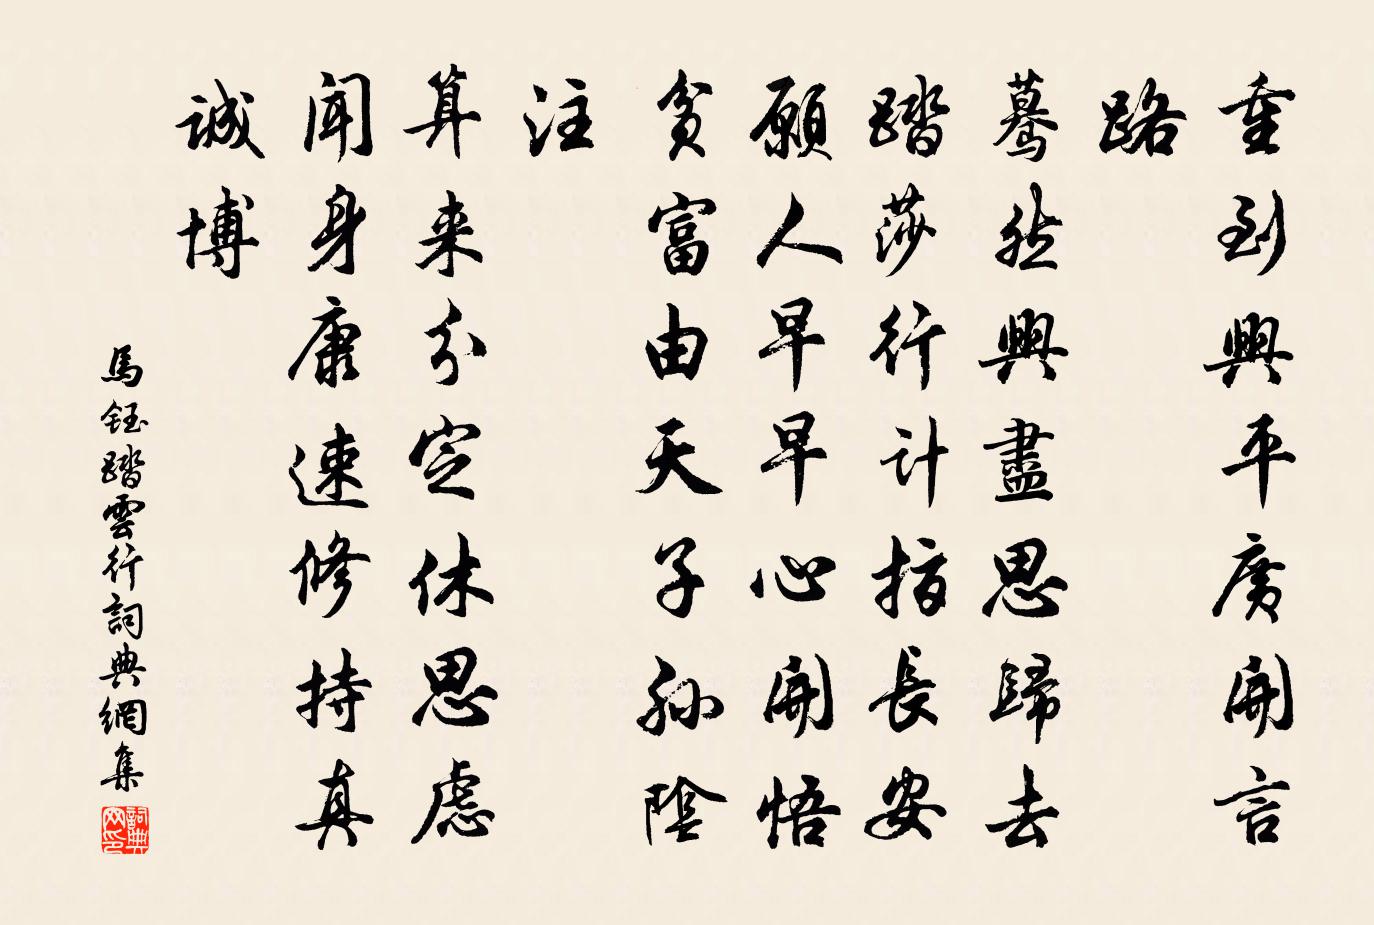 重到興平廣開言
路
驀然興盡思歸去
踏莎行計指長安
願人早早心開悟
貧富由天子孫陰
注
算来分定休思慮
聞身康速修持真
誠博
馬鈺踏雲行詞典網集
詞典網印